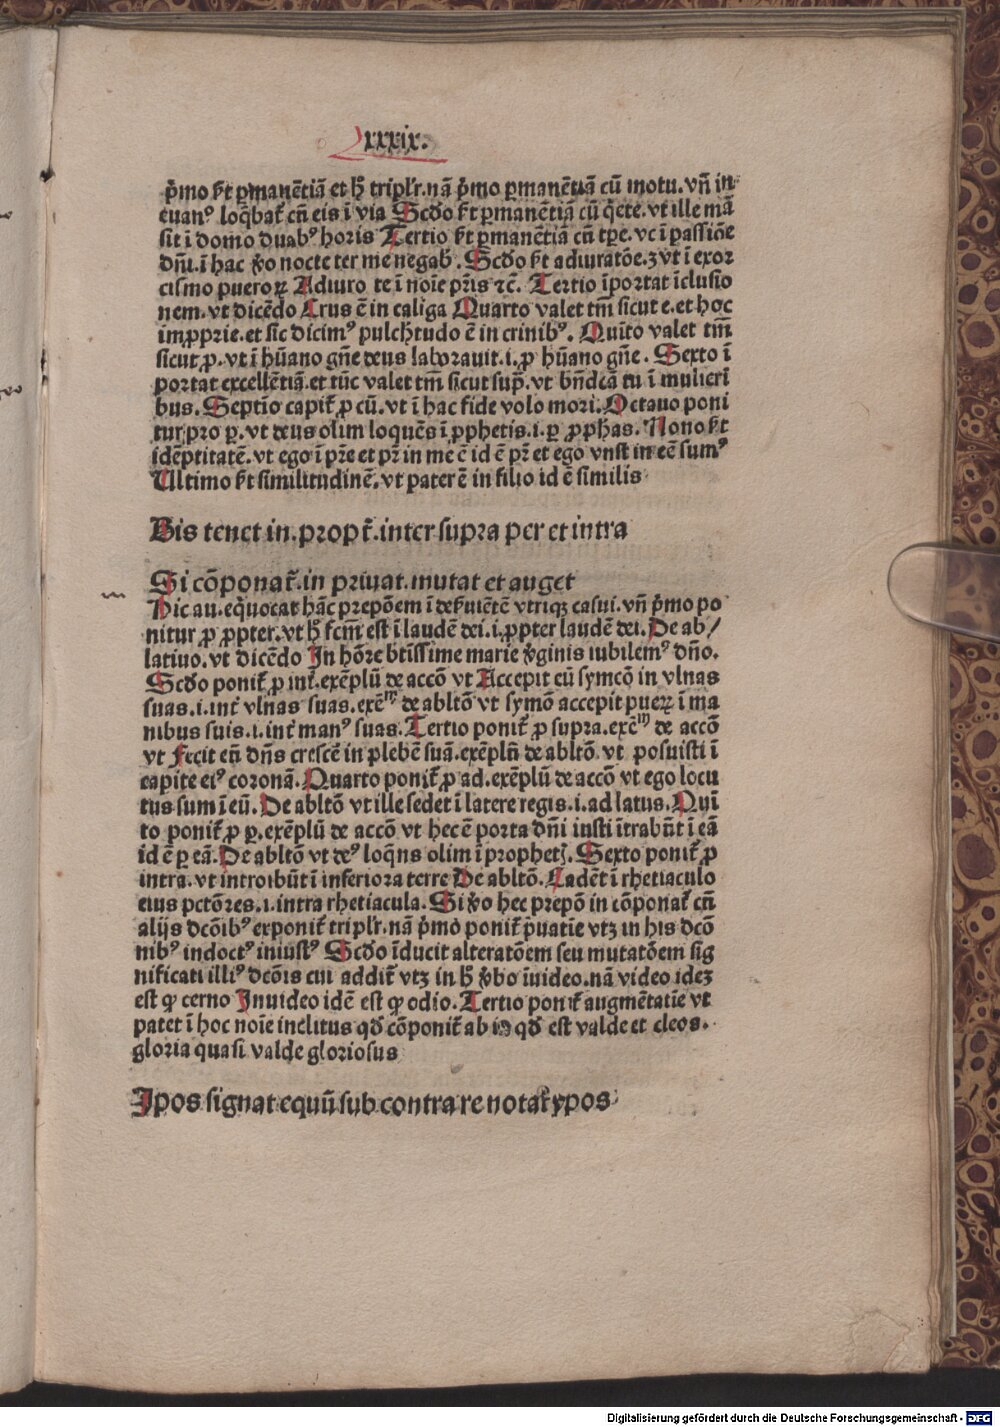 xxxix.
p̄mo fit ꝑmanētiā et h̄ triplr̄. nā p̄mo ꝑmanētiā cū motu. vn̄ in
euanꝰ loq̄bat̄ cū eis ī via Scd̄o fit ꝑmanētiā cū q̄ete. vt ille mā
sit ī domo duabꝰ horis Tertio fit ꝑmanētiā cū tꝑe. vt ī passiōe
dn̄i. ī hac v̄o nocte ter me negab̄. Scd̄o fit adiuratōe. ꝫ vt ī exor
cismo pueroꝝ Adiuro te ī noīe pr̄is ⁊c̄. Tertio īportat īclusio
nem. vt dicēdo Crus ē in caliga Quarto valet tm̄ sicut e. et hoc
imꝓprie. et sic dicimꝰ pulch̄tudo ē in crinibꝰ. Quīto valet tm̄
sicut ꝓ. vt ī hūano gn̄e deus laborauit. i. ꝓ hūano gn̄e. Sexto ī
portat excellētiā. et tūc valet tm̄ sicut sup̄. vt bn̄dc̄a tu ī mulieri
bus. Septīo capit̄ ꝓ cū. vt ī hac fide volo mori. Octauo poni
tur pro ꝑ. vt deus olim loquēs ī ꝓphetis. i. ꝑ ꝓphas. Nono fit
idēptitatē. vt ego ī pr̄e et pr̄ in me ē id ē pr̄ et ego vnū in eē sumꝰ
Ultimo fit similitudinē. vt pater ē in filio id ē similis
Bis tenet in. propt̄. inter supra per et intra
Si cōponat̄. in priuat. mutat et auget
Hic au. equocat hāc prepōem ī deſuiētē vtriqꝫ casui. vn̄ p̄mo po
nitur ꝓ ꝓpter. vt h̄ fcm̄ est ī laudē dei. i. ꝓpter laudē dei. De ab/
latiuo. vt dicēdo In hōre btīssime marie v̄ginis iubilemꝰ dn̄o.
Scd̄o ponit̄ ꝓ int̄. exēplū de accō vt Accepit eū symeō in vlnas
suas. i. int̄ vlnas suas. exēᵐ de abltō vt symō accepit pueꝝ ī ma
nibus suis. i. int̄ manꝰ suas. Tertio ponit̄ ꝓ supra. exēᵐ de accō
vt Fecit eū dn̄s crescē in plebē suā. exēplū de abltō. vt posuisti ī
capite eiꝰ coronā. Quarto ponit̄ ꝓ ad. exēplū de accō vt ego locu
tus sum ī eū. De abltō vt ille sedet ī latere regis. i. ad latus. Quī
to ponit̄ ꝓ ꝑ. exēplū de accō vt hec ē porta dn̄i iusti ītrabūt ī eā
id ē ꝑ eā. De abltō vt deꝰ loq̄ns olim ī prophetꝭ. Sexto ponit̄ ꝓ
intra. vt introibūt ī inferiora terre De abltō. Cadēt ī rhetiaculo
eius pctōres. i. intra rhetiacula. Si v̄o hec prepō in cōponat̄ cū
alijs dcōibꝰ exponit̄ triplr̄. nā p̄mo ponit̄ p̄uatie vtꝫ in his dcō
nibꝰ indoctꝰ iniustꝰ Scd̄o īducit alteratōem seu mutatōem sig
nificati illiꝰ dcōis cui addit̄ vtꝫ in h̄ v̄bo īuideo. nā video ideꝫ
est qꝫ cerno Inuideo idē est qꝫ odio. Tertio ponit̄ augmētatīe vt
patet ī hoc noīe inclitus qd̄ cōponit̄ ab in qd̄ est valde et cleos.
gloria quasi valde gloriosus
Ipos signat equū sub contra re notat̄ ypos
Digitalisierung gefördert durch die Deutsche Forschungsgemeinschaft - DFG